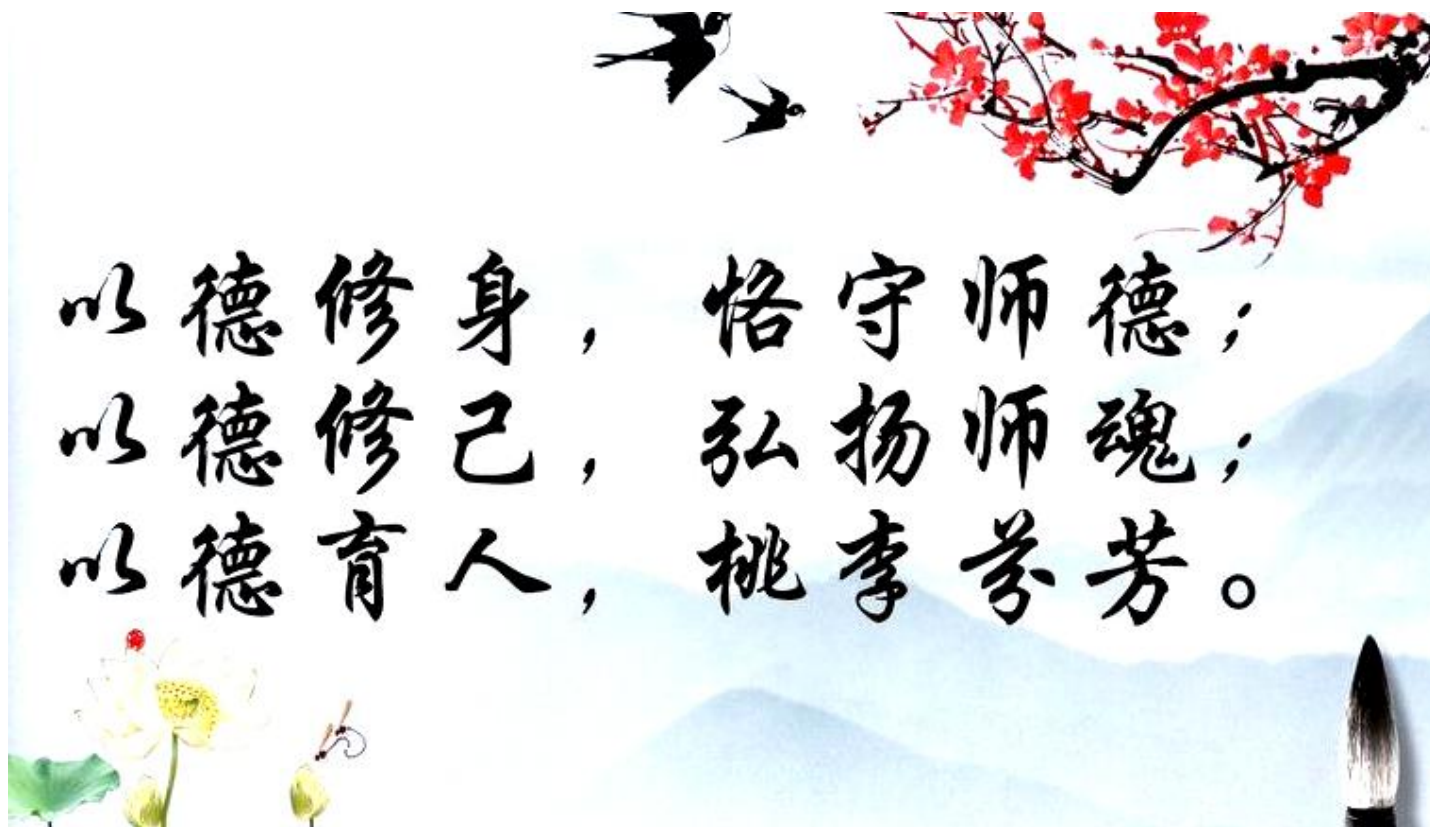 以德修身，恪守师德；
以德修己，弘扬师魂；
以德育人，桃李芬芳。